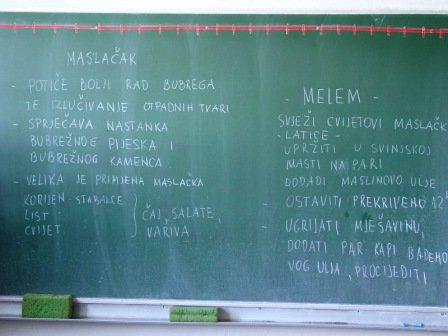 MASLAČAK
- POTIČE BOLJI RAD BUBREGA
TE IZLUČIVANJE OTPADNIH TVARI
- SPRJEČAVA NASTANKA
BUBREŽNOG PIJESKA I
BUBREŽNOG KAMENCA
- VELIKA JE PRIMJENA MASLAČKA
KORIJEN - STABALCE
LIST
CVIJET
ČAJ, SALATE,
VARIVA
- MELEM -
SVJEŽI CVIJETOVI MASLAČK
- LATICE -
UPRŽITI U SVINJSKOJ
MASTI NA PARI
DODADI MASLINOVO ULJE
- OSTAVITI PREKRIVENO 12h
- UGRIJATI MJEŠAVINU,
DODATI PAR KAPI BADEMO
VOG ULJA, PROCIJEDITI